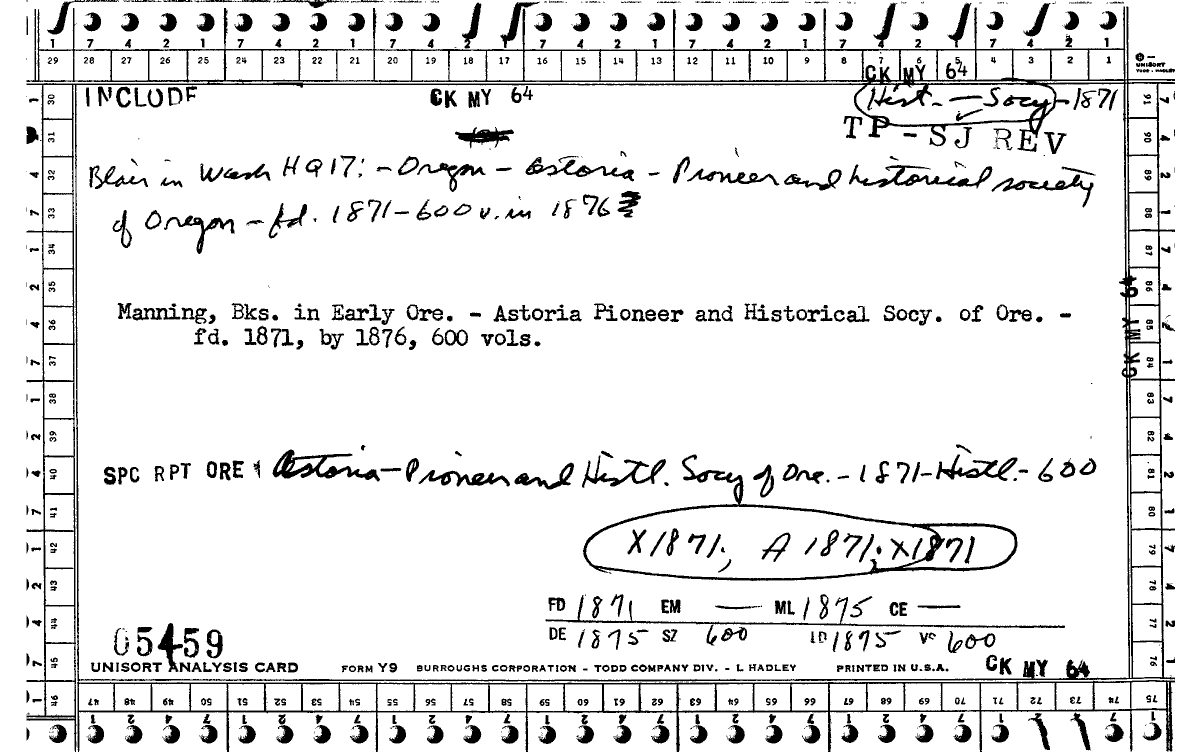 1 7 4 2 1 7 4 2 1 7 4 2 1 7 4 2 1 7 4 2 1 7 4 2 1 7 4 2 1
29 28 27 26 25 24 23 22 21 20 19 18 17 16 15 14 13 12 11 10 9 8 7 6 5 4 3 2 1
UNISORT
TODD - HADLEY
CK MY 64
INCLUDE
CK MY 64
Hist. — Socy - 1871
TP - SJ REV
Blair in Wash HQ 17: - Oregon - Astoria - Pioneer and historical society
of Oregon - fd. 1871 - 600 v. in 1876
Manning, Bks. in Early Ore. - Astoria Pioneer and Historical Socy. of Ore. -
fd. 1871, by 1876, 600 vols.
CK MY 64
SPC RPT ORE Astoria - Pioneer and Histl. Socy of Ore. - 1871 - Histl. - 600
X1871; A 1871; X1871
FD 1871 EM — ML 1875 CE —
DE 1875 SZ 600 LD 1875 VC 600
05459
UNISORT ANALYSIS CARD FORM Y9 BURROUGHS CORPORATION - TODD COMPANY DIV. - L HADLEY PRINTED IN U.S.A.
CK MY 64
30 31 32 33 34 35 36 37 38 39 40 41 42 43 44 45 46
91 90 89 88 87 86 85 84 83 82 81 80 79 78 77 76
47 48 49 50 51 52 53 54 55 56 57 58 59 60 61 62 63 64 65 66 67 68 69 70 71 72 73 74 75